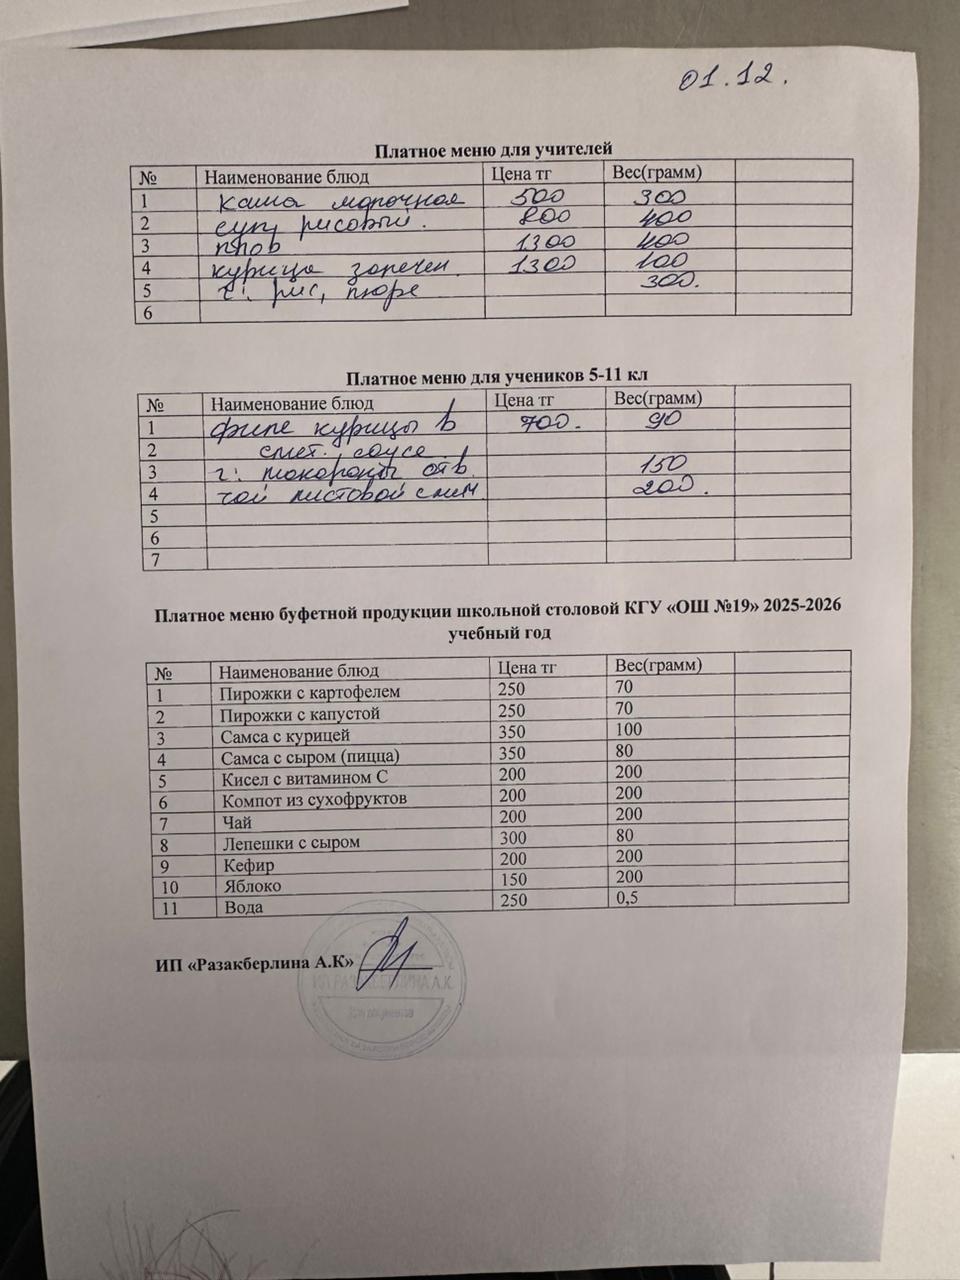 01.12.
Платное меню для учителей
№ Наименование блюд Цена тг Вес(грамм)
1 каша молочная 500 300
2 суп рисовый. 800 400
3 плов 1300 400
4 курица запечен. 1300 100
5 г: рис, пюре 300.
6
Платное меню для учеников 5-11 кл
№ Наименование блюд Цена тг Вес(грамм)
1 филе курицы в 700. 90
2 смет. соусе.
3 г: макароны отв. 150
4 чай листовой с лим 200.
5
6
7
Платное меню буфетной продукции школьной столовой КГУ «ОШ №19» 2025-2026
учебный год
№ Наименование блюд Цена тг Вес(грамм)
1 Пирожки с картофелем 250 70
2 Пирожки с капустой 250 70
3 Самса с курицей 350 100
4 Самса с сыром (пицца) 350 80
5 Кисел с витамином С 200 200
6 Компот из сухофруктов 200 200
7 Чай 200 200
8 Лепешки с сыром 300 80
9 Кефир 200 200
10 Яблоко 150 200
11 Вода 250 0,5
ИП «Разакберлина А.К»
ИП РАЗАКБЕРЛИНА А.К.
Для документов